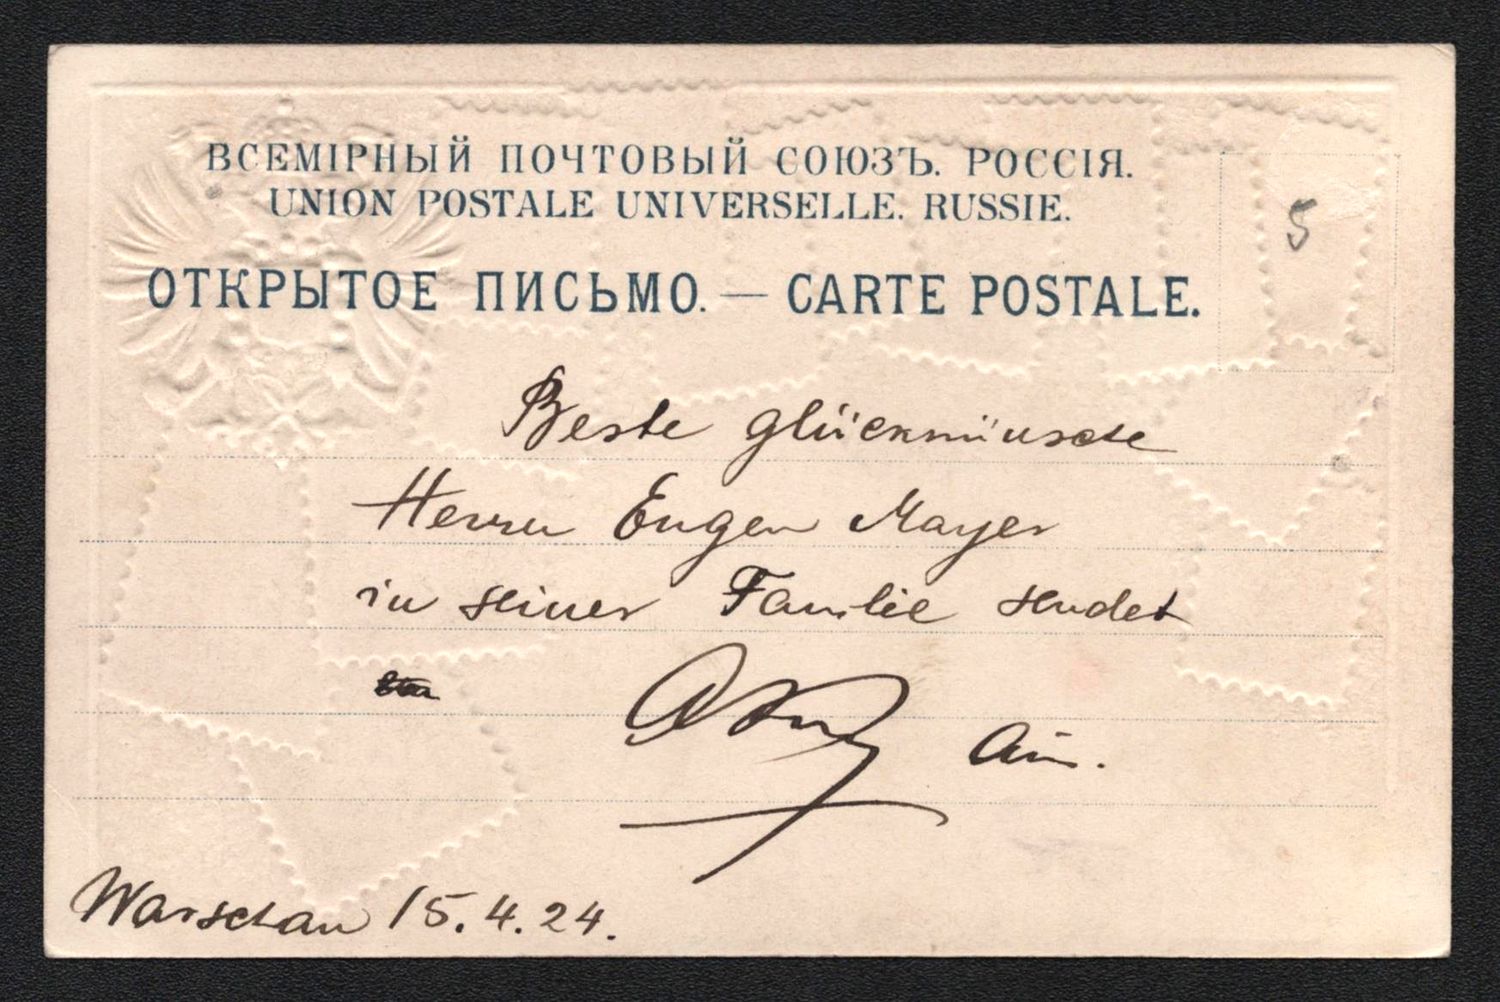 ВСЕМІРНЫЙ ПОЧТОВЫЙ СОЮЗЪ. РОССІЯ.
UNION POSTALE UNIVERSELLE. RUSSIE.
5
ОТКРЫТОЕ ПИСЬМО. — CARTE POSTALE.
Beste glückwünsche
Herrn Eugen Mayer
in seiner Familie sendet
Warschau 15.4.24.